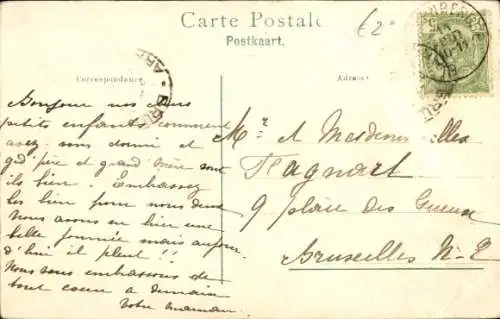 Carte Postale
Postkaart.
€2
Correspondance
Adres
Bonjour nos chers
petits enfants, comment
avez vous dormi et
gd père et grand mère sont
ils bien. Embassez
les bien pour nous deux
Nous avons eu hier une
belle journée mais aujour
d'hui il pleut !!
Nous vous embassons de
tout coeur a demain
Votre maman
Mr et Mesdemoiselles
Flagnart
9 place des Gueux
Bruxelles N-E